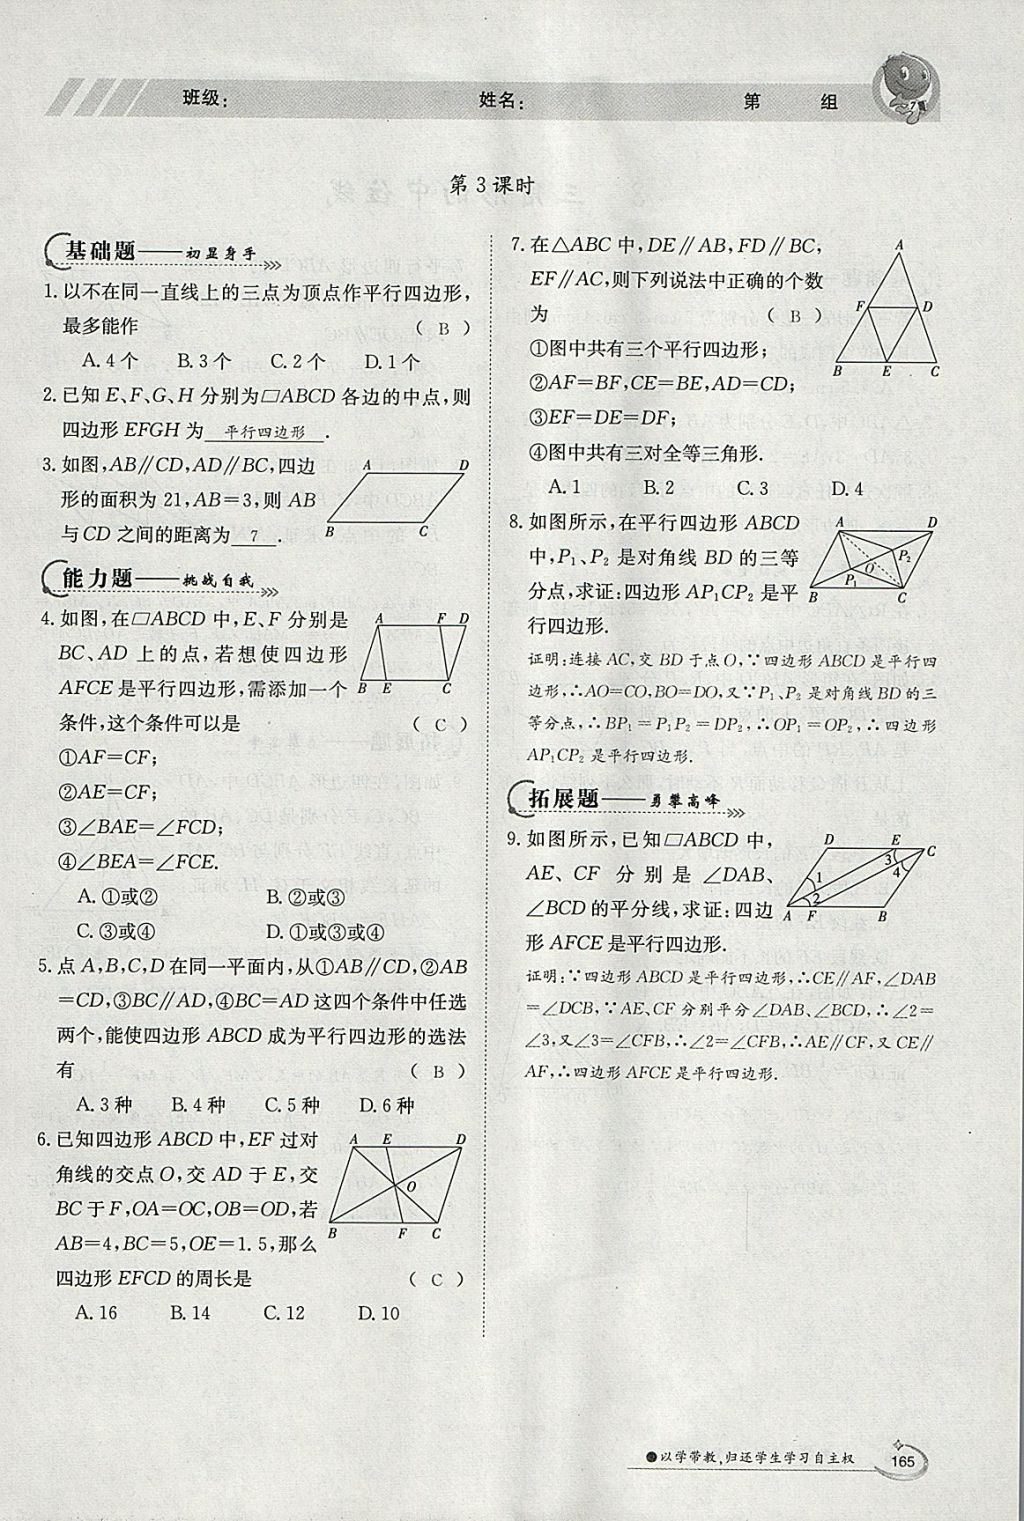 班级:　姓名:　第　组
第 3 课时
基础题——初显身手
1. 以不在同一直线上的三点为顶点作平行四边形,
最多能作 ( B )
A. 4 个　B. 3 个　C. 2 个　D. 1 个
2. 已知 E、F、G、H 分别为▱ABCD 各边的中点,则
四边形 EFGH 为 平行四边形 .
3. 如图,AB∥CD,AD∥BC,四边
形的面积为 21,AB=3,则 AB
与 CD 之间的距离为 7 .
A D
B C
能力题——挑战自我
4. 如图,在▱ABCD 中,E、F 分别是
BC、AD 上的点,若想使四边形
AFCE 是平行四边形,需添加一个
条件,这个条件可以是 ( C )
A F D
B E C
①AF=CF;
②AE=CF;
③∠BAE=∠FCD;
④∠BEA=∠FCE.
A. ①或②　B. ②或③
C. ③或④　D. ①或③或④
5. 点 A,B,C,D 在同一平面内,从①AB∥CD,②AB
=CD,③BC∥AD,④BC=AD 这四个条件中任选
两个,能使四边形 ABCD 成为平行四边形的选法
有 ( B )
A. 3 种　B. 4 种　C. 5 种　D. 6 种
6. 已知四边形 ABCD 中,EF 过对
角线的交点 O,交 AD 于 E,交
BC 于 F,OA=OC,OB=OD,若
AB=4,BC=5,OE=1.5,那么
四边形 EFCD 的周长是 ( C )
A E D
O
B F C
A. 16　B. 14　C. 12　D. 10
7. 在△ABC 中,DE∥AB,FD∥BC,
EF∥AC,则下列说法中正确的个数
为 ( B )
A
F D
B E C
①图中共有三个平行四边形;
②AF=BF,CE=BE,AD=CD;
③EF=DE=DF;
④图中共有三对全等三角形.
A. 1　B. 2　C. 3　D. 4
8. 如图所示,在平行四边形 ABCD
中,P₁、P₂ 是对角线 BD 的三等
分点,求证:四边形 AP₁CP₂ 是平
行四边形.
A D
P₂
O
P₁
B C
证明:连接 AC,交 BD 于点 O,∵四边形 ABCD 是平行四
边形,∴AO=CO,BO=DO,又∵P₁、P₂ 是对角线 BD 的三
等分点,∴BP₁=P₁P₂=DP₂,∴OP₁=OP₂,∴四边形
AP₁CP₂ 是平行四边形.
拓展题——勇攀高峰
9. 如图所示,已知▱ABCD 中,
AE、CF 分别是∠DAB、
∠BCD 的平分线,求证:四边
形 AFCE 是平行四边形.
D E C
3
4
1
2
A F B
证明:∵四边形 ABCD 是平行四边形,∴CE∥AF,∠DAB
=∠DCB,∵AE、CF 分别平分∠DAB、∠BCD,∴∠2=
∠3,又∠3=∠CFB,∴∠2=∠CFB,∴AE∥CF,又 CE∥
AF,∴四边形 AFCE 是平行四边形.
以学带教,归还学生学习自主权
165